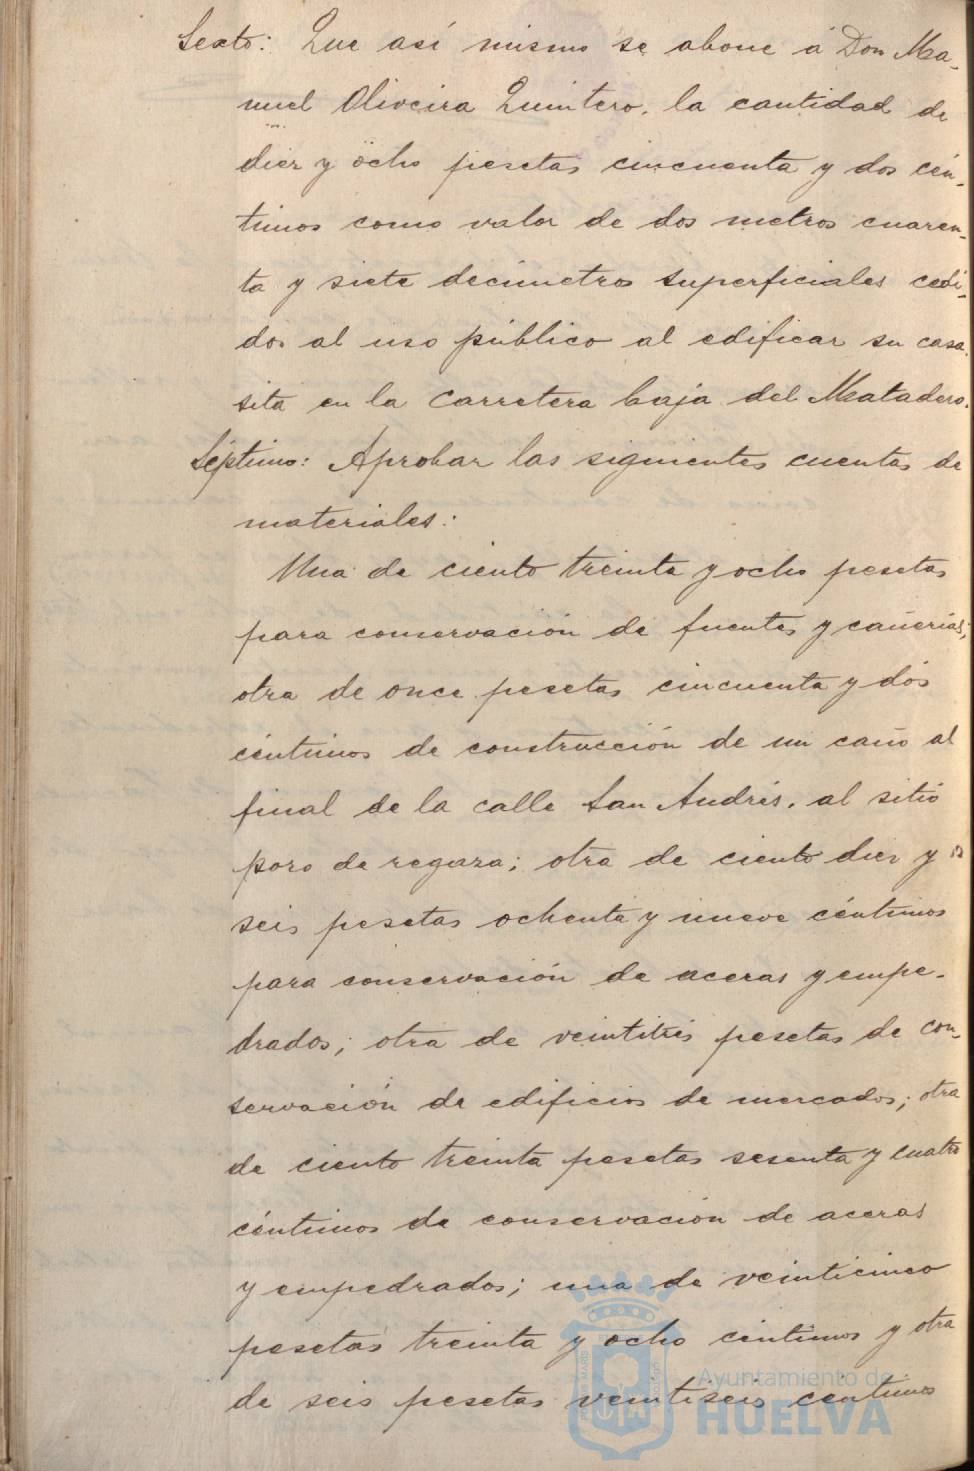 Sexto: Que así mismo se abone á Don Ma-
nuel Oliveira Quintero, la cantidad de
diez y ocho pesetas cincuenta y dos cén-
timos como valor de dos metros cuaren-
ta y siete decimetros superficiales cedi-
dos al uso público al edificar su casa
sita en la Carretera baja del Matadero.
Séptimo: Aprobar las siguientes cuentas de
materiales:
Una de ciento treinta y ocho pesetas
para conservación de fuentes y cañerias;
otra de once pesetas cincuenta y dos
céntimos de construcción de un caño al
final de la calle San Andrés, al sitio
pozo de regaza; otra de ciento diez y
seis pesetas ochenta y nueve céntimos
para conservación de aceras y empe-
drados; otra de veintitrés pesetas de con-
servación de edificios de mercados; otra
de ciento treinta pesetas sesenta y cuatro
céntimos de conservación de aceras
y empedrados; una de veinticinco
pesetas treinta y ocho céntimos y otra
de seis pesetas veintiseis centimos
Ayuntamiento de
HUELVA